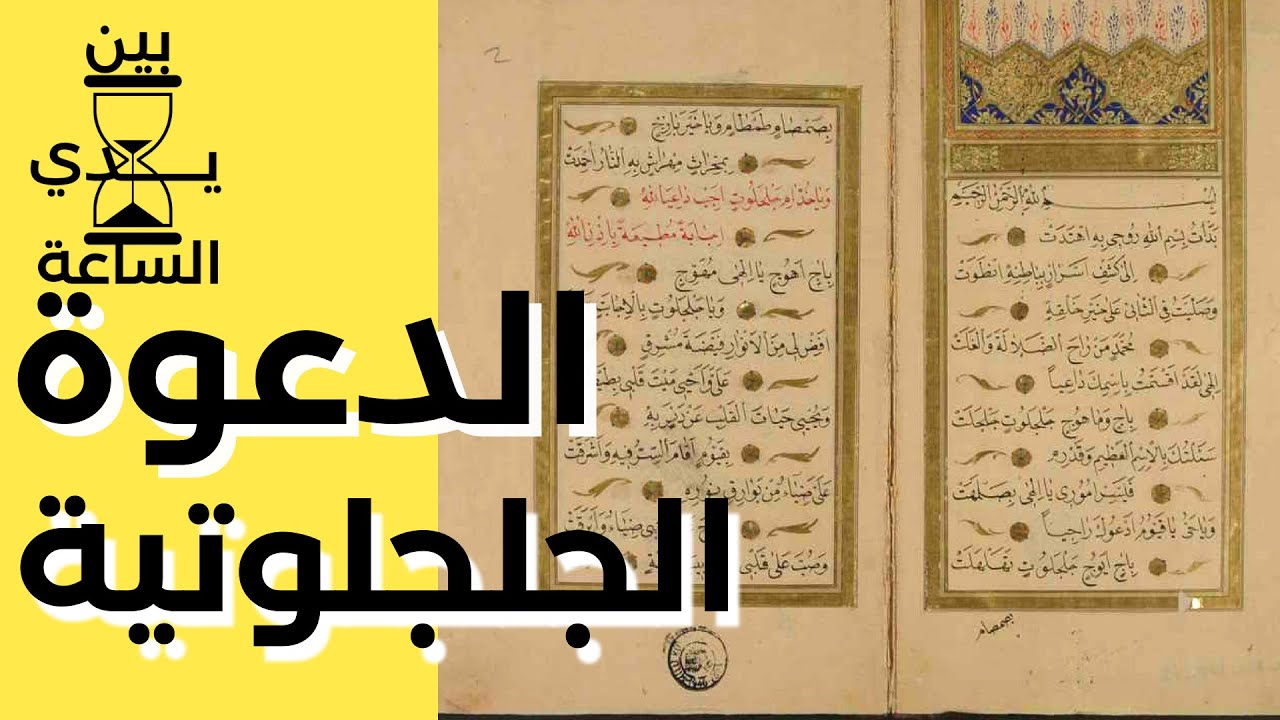 بين
يدي
الساعة
الدعوة
الجلجلوتية
بسم الله الرحمن الرحيم
بدأت بسم الله روحي به اهتدت
الى كشف اسرار بباطنه انطوت
وصليت في الثاني على خير خلقه
محمد من زاح الضلالة والغلت
الهي لقد اقسمت باسمك داعيا
باج وما هوج جلجلوت جلجلت
سئلتك بالاسم العظيم وقدره
فيسر اموري يا الهي بصلمت
ويا حي يا قيوم ادعوك راجيا
باج ايوج جلجلوت تفلهلت
بصمصام
بصمصام طمطام ويا خير بازخ
بمحراث مهراش به النار اخمدت
ويا خدام جلجلوت اجب داعيا لله
اجابة مطيعة باذن الله
باج اهوج يا الهي مفوج
ويا جلجلوت بالاجابة
افض لي من الانوار فيضة مشرق
علي واحيي ميت قلبي
ويحيي حيات القلب عن دنس به
بقيوم اقام السر فيه واشرقت
على ضياء من بوارق نوره
ضياء وابرقت
وصب على قلبي
2